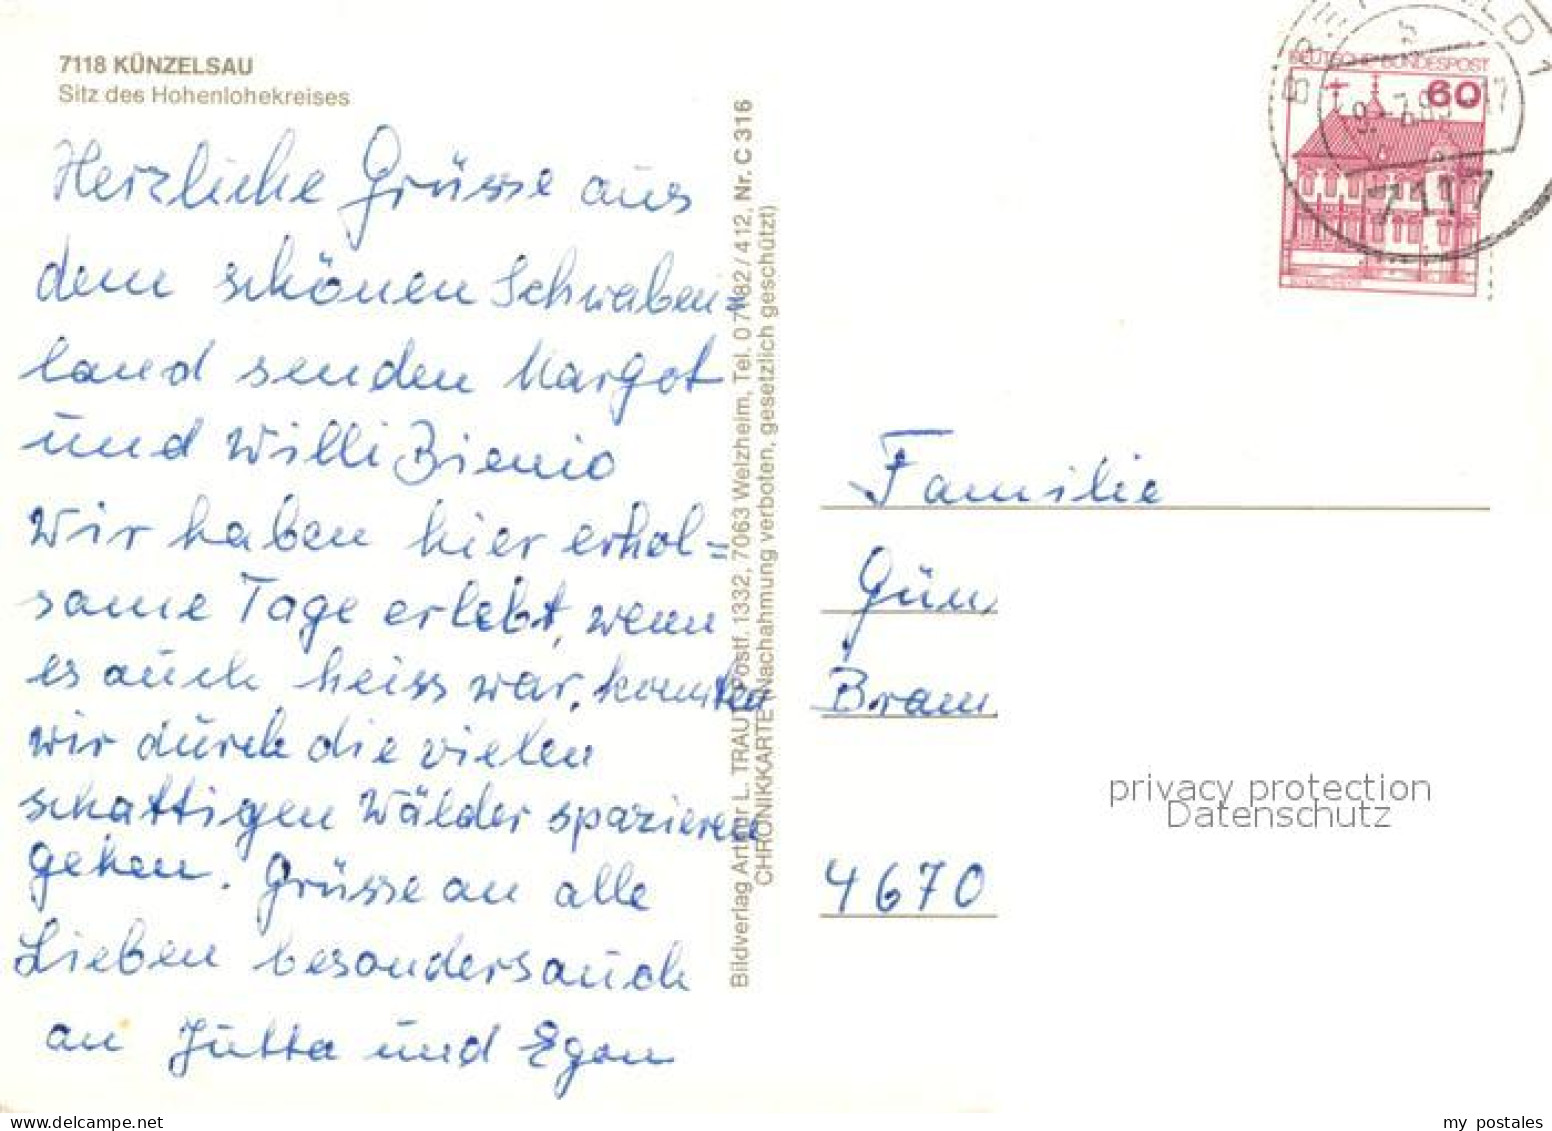 7118 KÜNZELSAU
Sitz des Hohenlohekreises
Herzliche Grüsse aus
dem schönen Schwaben=
land senden Margot
und Willi Bienio
Wir haben hier erhol=
same Tage erlebt, wenn
es auch heiss war, konnten
wir durch die vielen
schattigen Wälder spazieren
gehen. Grüsse an alle
Lieben besonders auch
an Jutta und Egon
Bildverlag Arthur L. TRAUT, Postf. 1332, 7063 Welzheim, Tel. 07182/412, Nr. C 316
CHRONIKKARTE (Nachahmung verboten, gesetzlich geschützt)
DEUTSCHE BUNDESPOST
60
7117
Familie
Gün
Bram
4670
privacy protection
Datenschutz
my postales